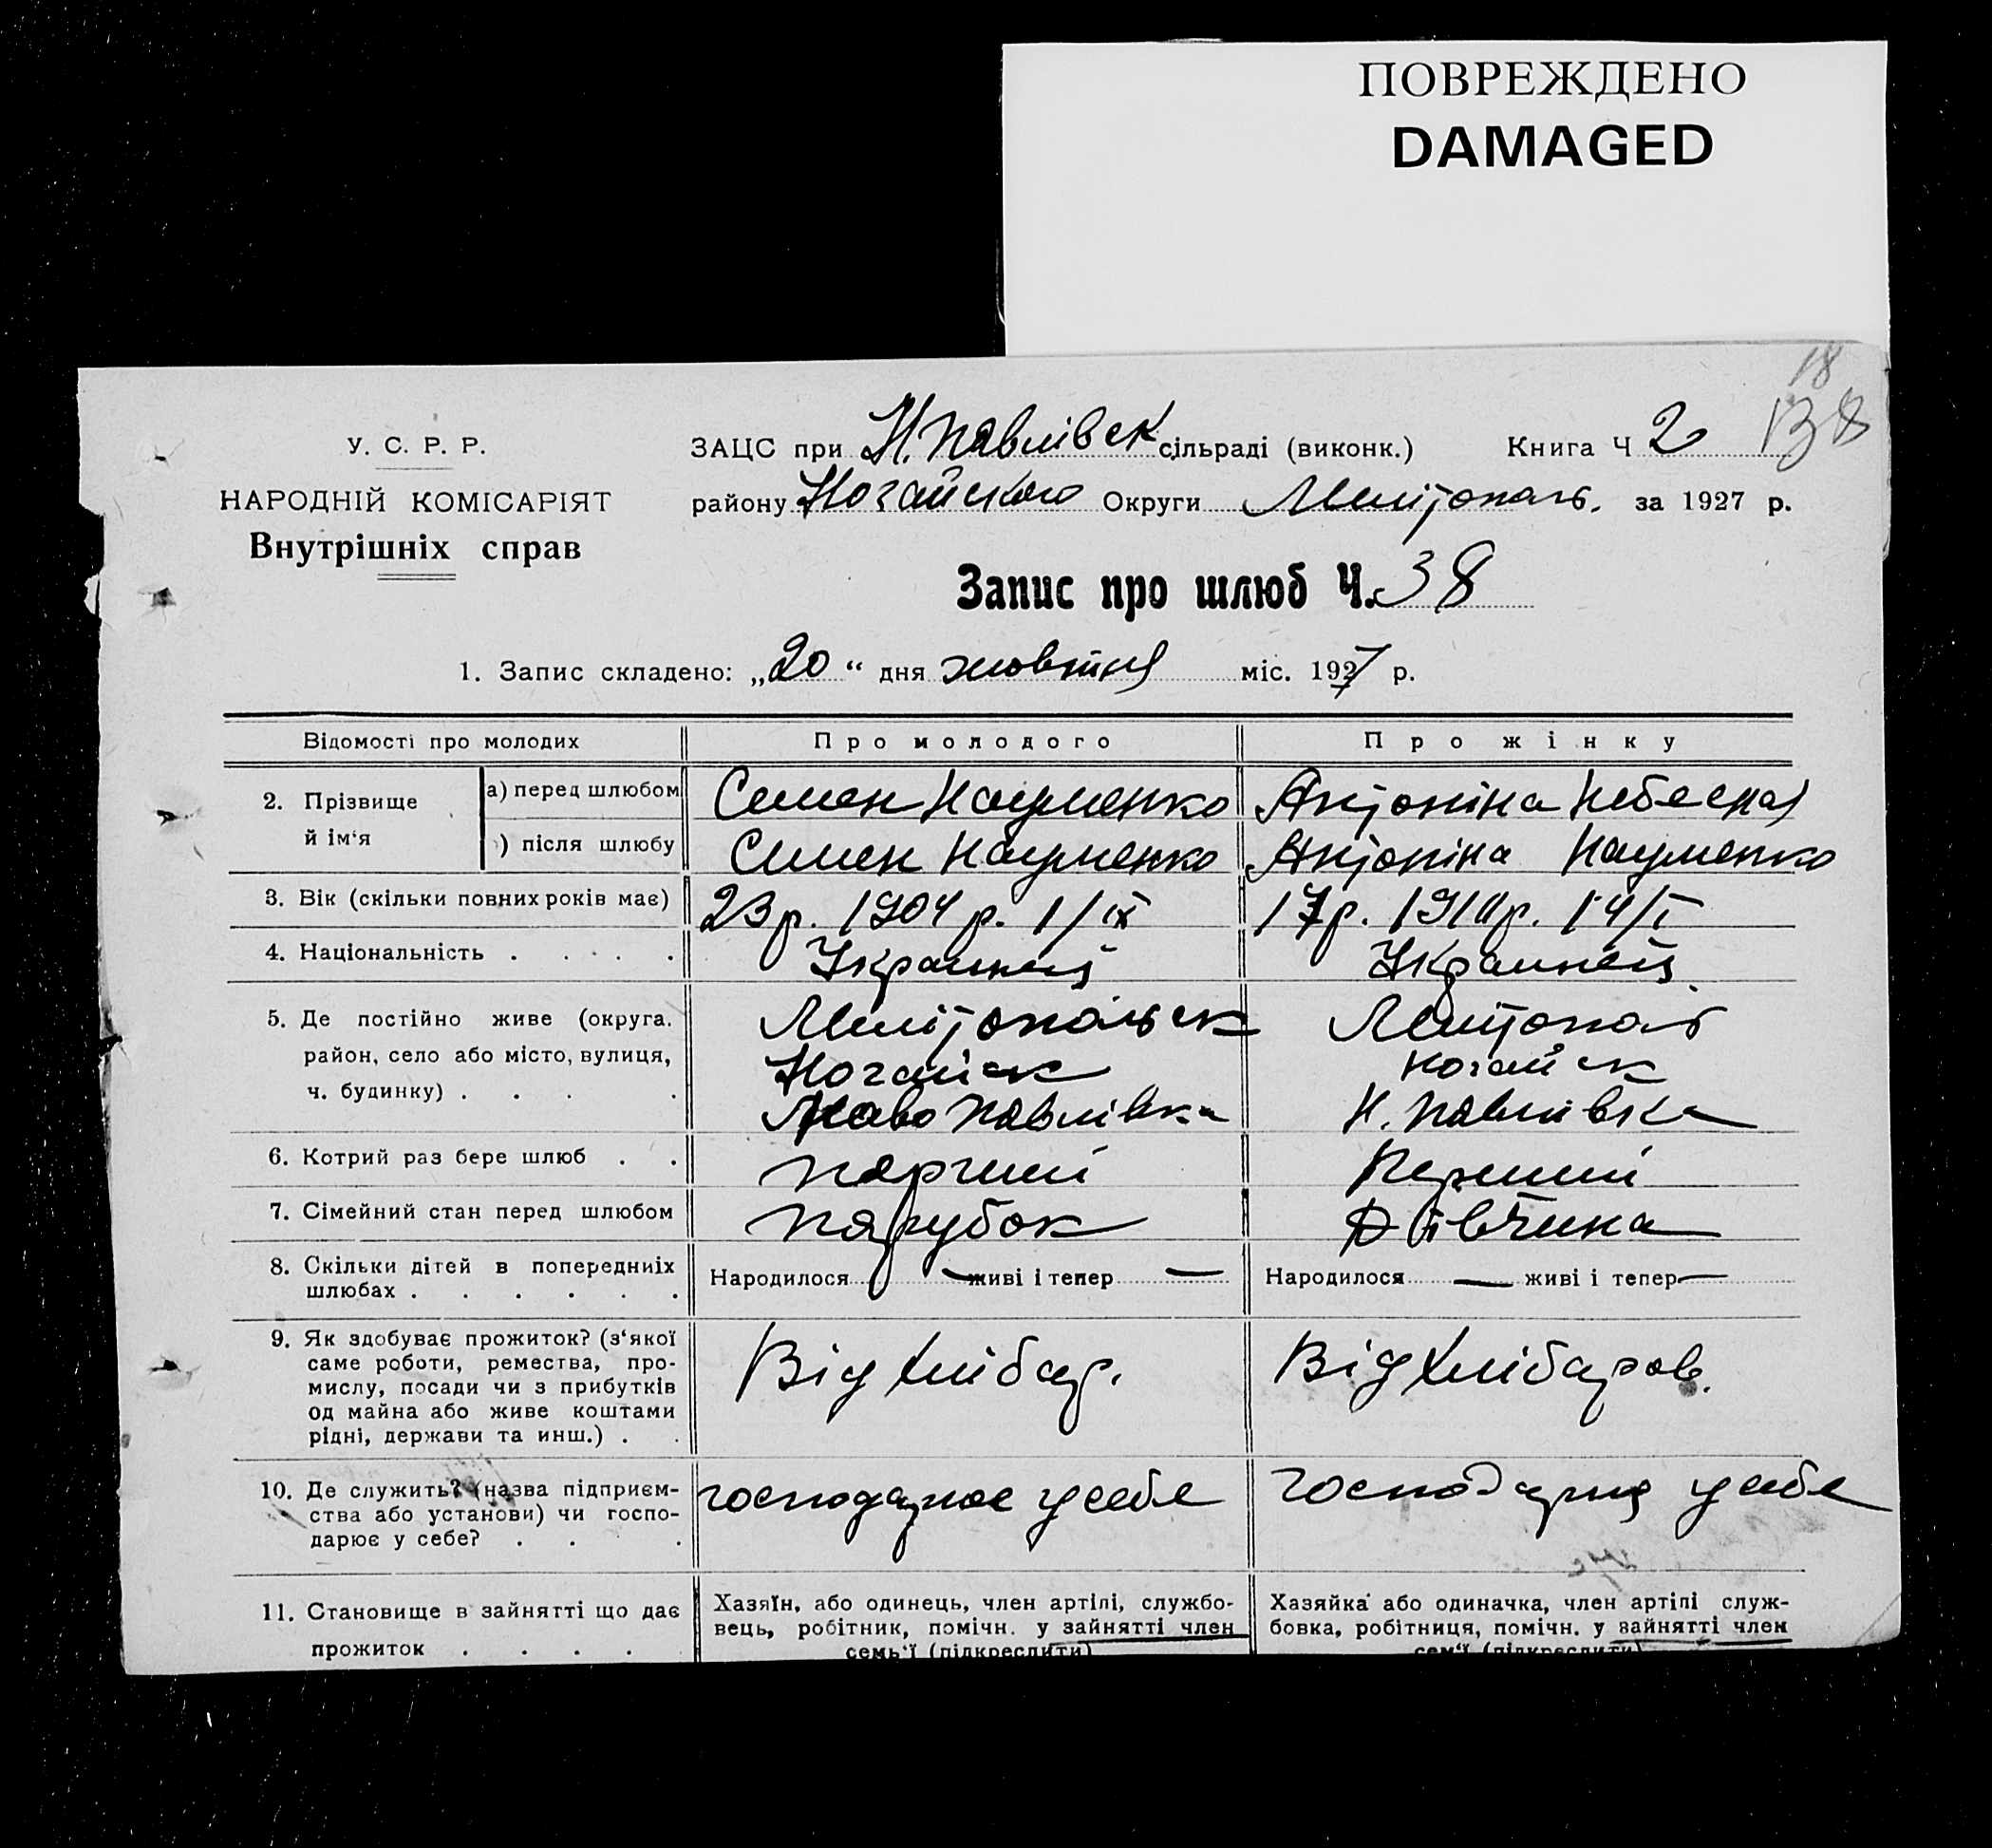 ПОВРЕЖДЕНО
DAMAGED
18
138
У. С. Р. Р.
НАРОДНІЙ КОМІСАРІЯТ
Внутрішніх справ
ЗАЦС при Н. Павлівск сільраді (виконк.) Книга Ч 2
району Ногайского Округи Мелітополь. за 1927 р.
Запис про шлюб Ч. 38
1. Запис складено: „20“ дня жовтня міс. 1927 р.
Відомості про молодих Про молодого Про жінку
2. Прізвище й ім‘я
а) перед шлюбом Семен Науменко Антоніна Небесная
) після шлюбу Семен Науменко Антоніна Науменко
3. Вік (скільки повних років має) 23 р. 1904 р. 1/IX 17 р. 1910 р. 14/I
4. Національність . . . . . Українець Українець
5. Де постійно живе (округа, Мелітопольск Мелітополь
район, село або місто, вулиця, Ногайск Ногайск
ч. будинку) . . . . Ново Павлівка Н. Павлівка
6. Котрий раз бере шлюб . . Перший Перший
7. Сімейний стан перед шлюбом Парубок Дівчина
8. Скільки дітей в попередніх Народилося — живі і тепер — Народилося — живі і тепер —
шлюбах . . . . . .
9. Як здобуває прожиток? (з‘якої
саме роботи, ремества, про-
мислу, посади чи з прибутків
од майна або живе коштами
рідні, держави та инш.) . .
Від хлібар. Від хлібаров.
10. Де служить? (назва підприєм-
ства або установи) чи госпо-
дарює у себе? . . .
господарює у себе господарня у себе
11. Становище в зайнятті що дає
прожиток . . . . .
Хазяїн, або одинець, член артілі, службо-
вець, робітник, помічн. у зайнятті член
семь‘ї (підкреслити)
Хазяйка або одиначка, член артілі служ-
бовка, робітниця, помічн. у зайнятті член
сем‘ї (підкреслити)